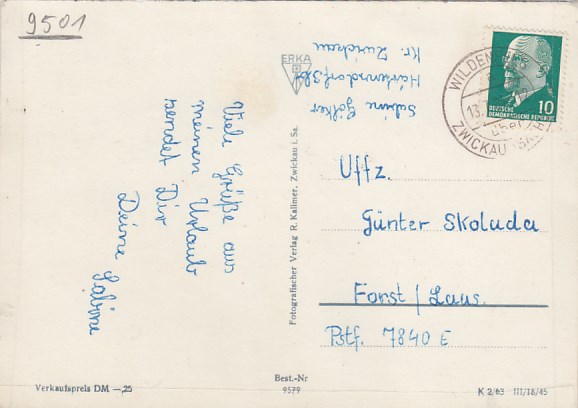 9501
Viele Grüße aus
meinem Urlaub
sendet Dir
Deine Sabine
ERKA
Kr. Zwickau
Hartensdorf
Sabine
DEUTSCHE
DEMOKRATISCHE REPUBLIK
10
WILDEN
13.
über
ZWICKAU (SACHS)
Uffz.
Günter Skoluda
Forst / Laus.
Pstf. 7840 E
Fotografischer Verlag R. Kallmer, Zwickau i. Sa.
Verkaufspreis DM —,25
Best.-Nr
9579
K 2/63 III/18/45